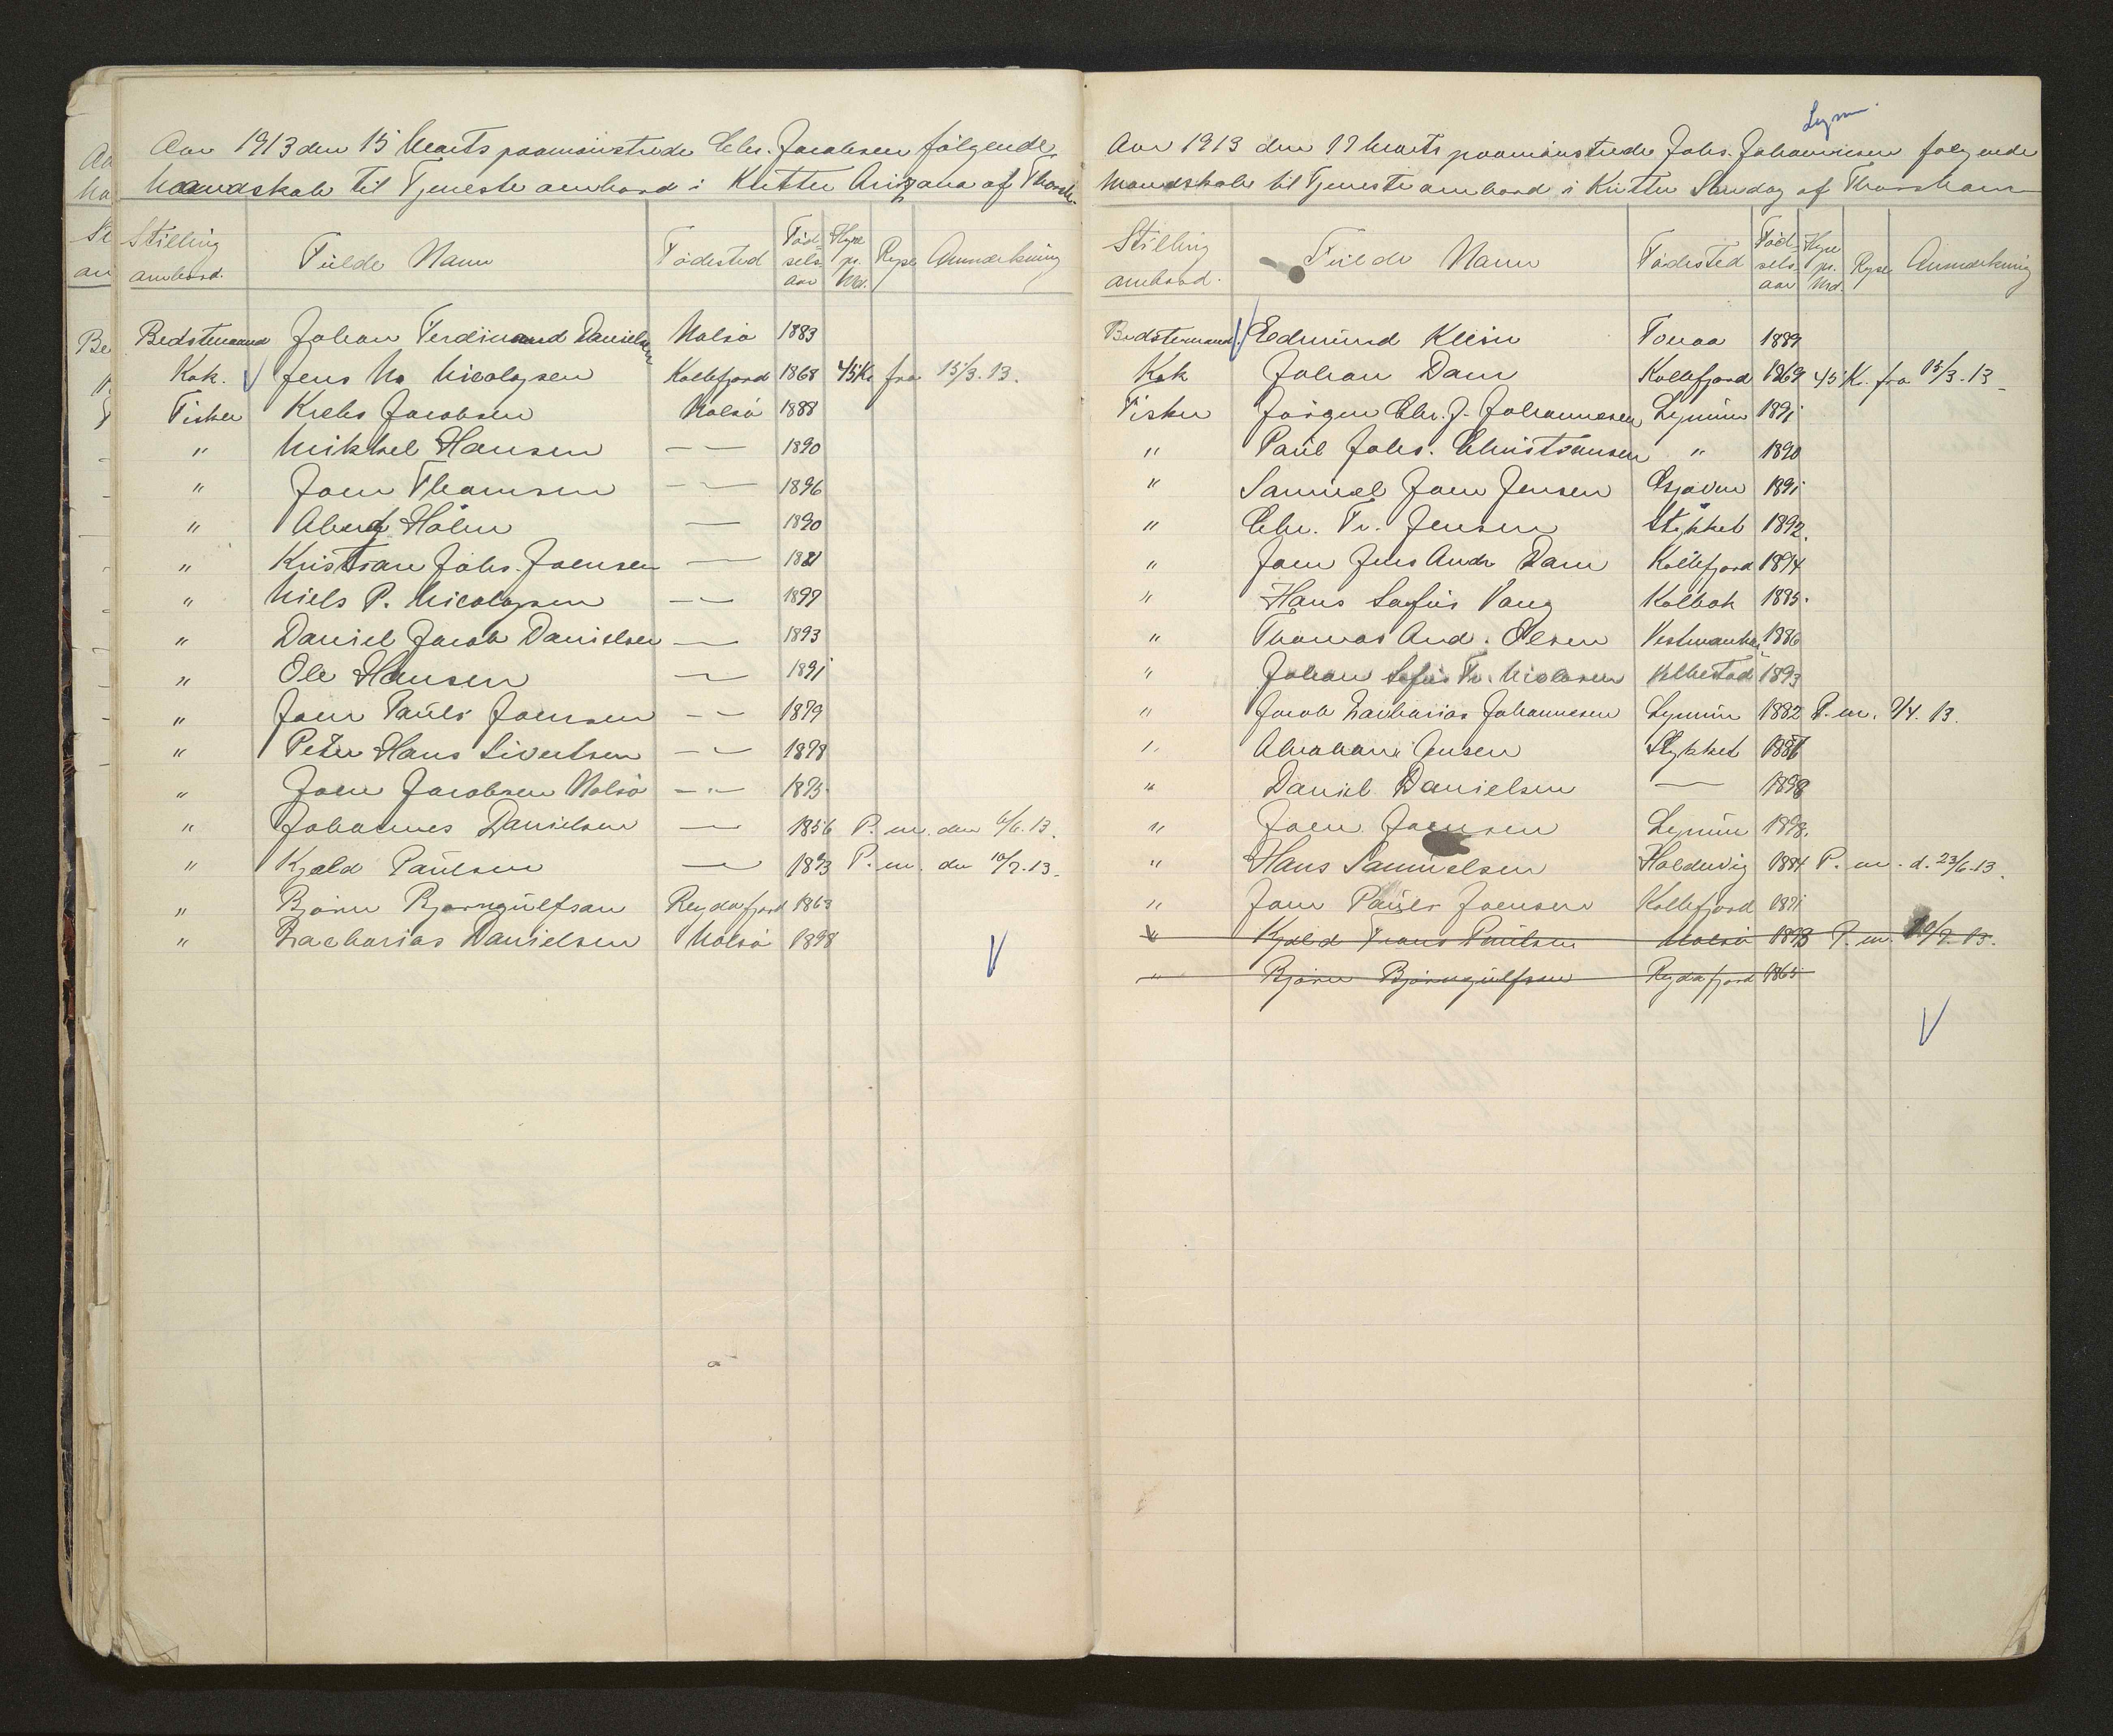 Aar 1913 den 15 Marts paamönstrede Chr. Jacobsen følgende
Mandskab til Tjeneste ombord i Kutter Arizona af Thorsh.
Stilling ombord. Fulde Navn Födested Födselsaar Hyre pr. Md. Anmærkning
Bedstemand Johan Ferdinand Danielsen Nolsö 1883
Kok. Jens M. Nicolajsen Kollefjord 1868 45 Kr fra 15/3. 13.
Fisker Krebs Jacobsen Nolsö 1888
" Mikkel Hansen — 1890
" Joen Thomsen — 1896
" Holm — 1890
" Kristian Johs. Joensen — 1881
" Niels P. Nicolajsen — 1897
" Daniel Jacob Danielsen — 1893
" Ole Hansen — 1891
" Joen Pauls Joensen — 1879
" Peter Hans Sivertsen — 1878
" Joen Jacobsen Nolsö — 1875
" Johannes Danielsen — 1856 P. m. den 6/6. 13.
" Kjeld Paulsen — 1893 P. m. den 10/7. 13.
" Björn Björngulfsan Reydafjord 1863
" Zacharias Danielsen Nolsö 1898
Aar 1913 den 17 Marts paamönstrede Johs. Johannesen følgende
Mandskab til Tjeneste ombord i Kutter Sanday af Thorshavn
Stilling ombord. Fulde Navn Födested Födselsaar Hyre pr. Md. Anmærkning
Bedstemand Edmund Klein Tonaa 1889
Kok Johan Dam Kollefjord 1869 45 Kr. fra 15/3. 13
Fisker Jörgen Chr. J. Johannesen Lynum 1891
" Paul Johs. Christiansen " 1890
" Samuel Joen Jensen 1891
" Chr. Fr. Jensen Stykket 1892.
" Joen Jens Andr Dam Kollefjord 1894
" Hans Sofus Vang Kolbak 1895.
" Thomas And. Olsen 1886
" Johan Sofus Fr. 1893
" Jacob Zacharias Johannesen Lynum 1882 P. m. 9/4. 13.
" Abraham Jensen Stykket 1886
" Daniel Danielsen — 1898
" Joen Joensen Lynum 1898.
" Hans Samuelsen Haldervig 1884 P. m. d. 23/6.13.
" Joen Pauls Joensen Kollefjord 1871
" Kjeld Frans Paulsen Nolsö 1893 P. m. 10/7. 13.
" Björn Björngulfsan Reydafjord 1865